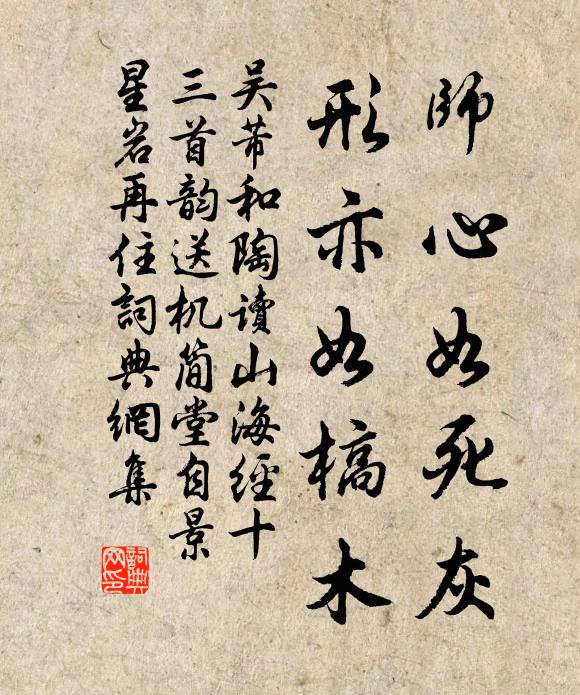 師心如死灰
形亦如槁木
吴芾和陶讀山海經十
三首韵送机簡堂自景
星岩再住詞典網集
詞典网印